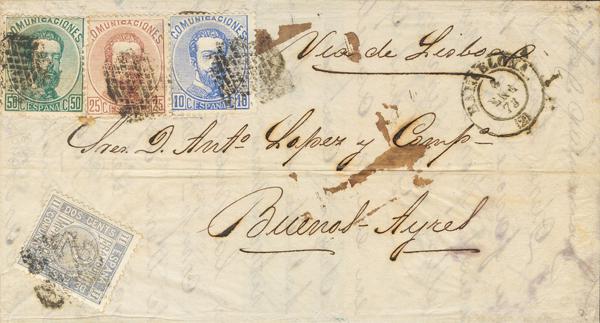 COMUNICACIONES
50 C ESPAÑA C 50
COMUNICACIONES
25 ESPAÑA 25
COMUNICACIONES
10 C ESPAÑA 10
Via de Lisboa
BARCELONA
73
Sres. D. Antº Lopez y Compª
Buenos-Ayres
DOS CENTS